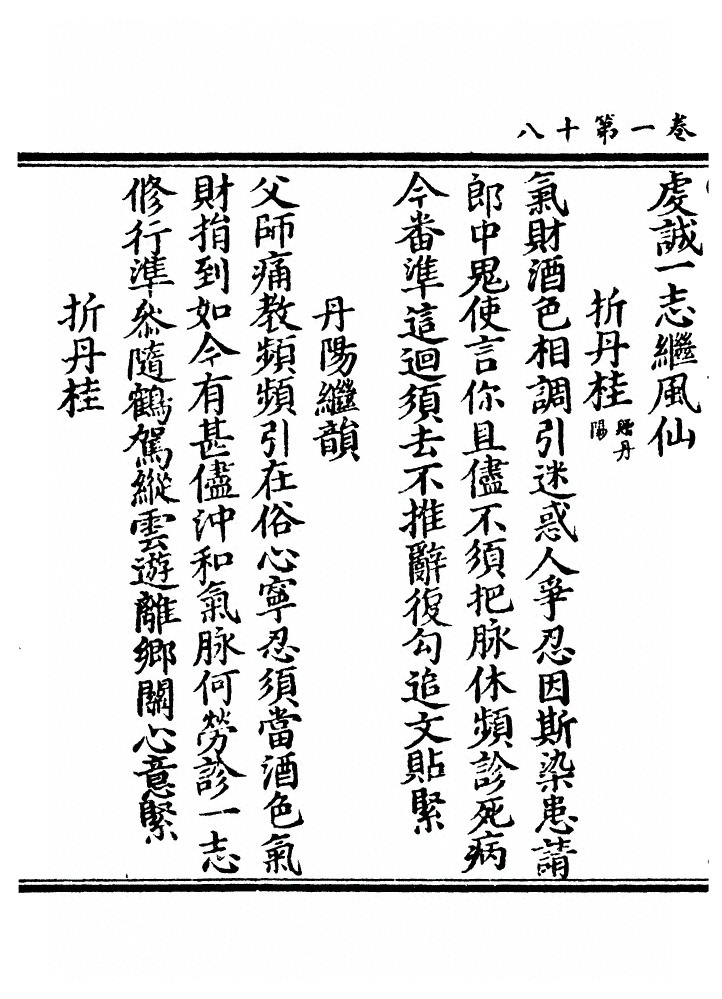 卷一第十八
虔誠一志繼風仙
折丹桂 贈丹陽
氣財酒色相調引迷惑人爭忍因斯染患請
郎中鬼使言你且儘不須把脉休頻診死病
今番準這迴須去不推辭復勾追文貼緊
丹陽繼韻
父師痛教頻頻引在俗心寧忍須當酒色氣
財捐到如今有甚儘沖和氣脉何勞診一志
修行準叅隨鶴駕縱雲遊離鄉關心意緊
折丹桂